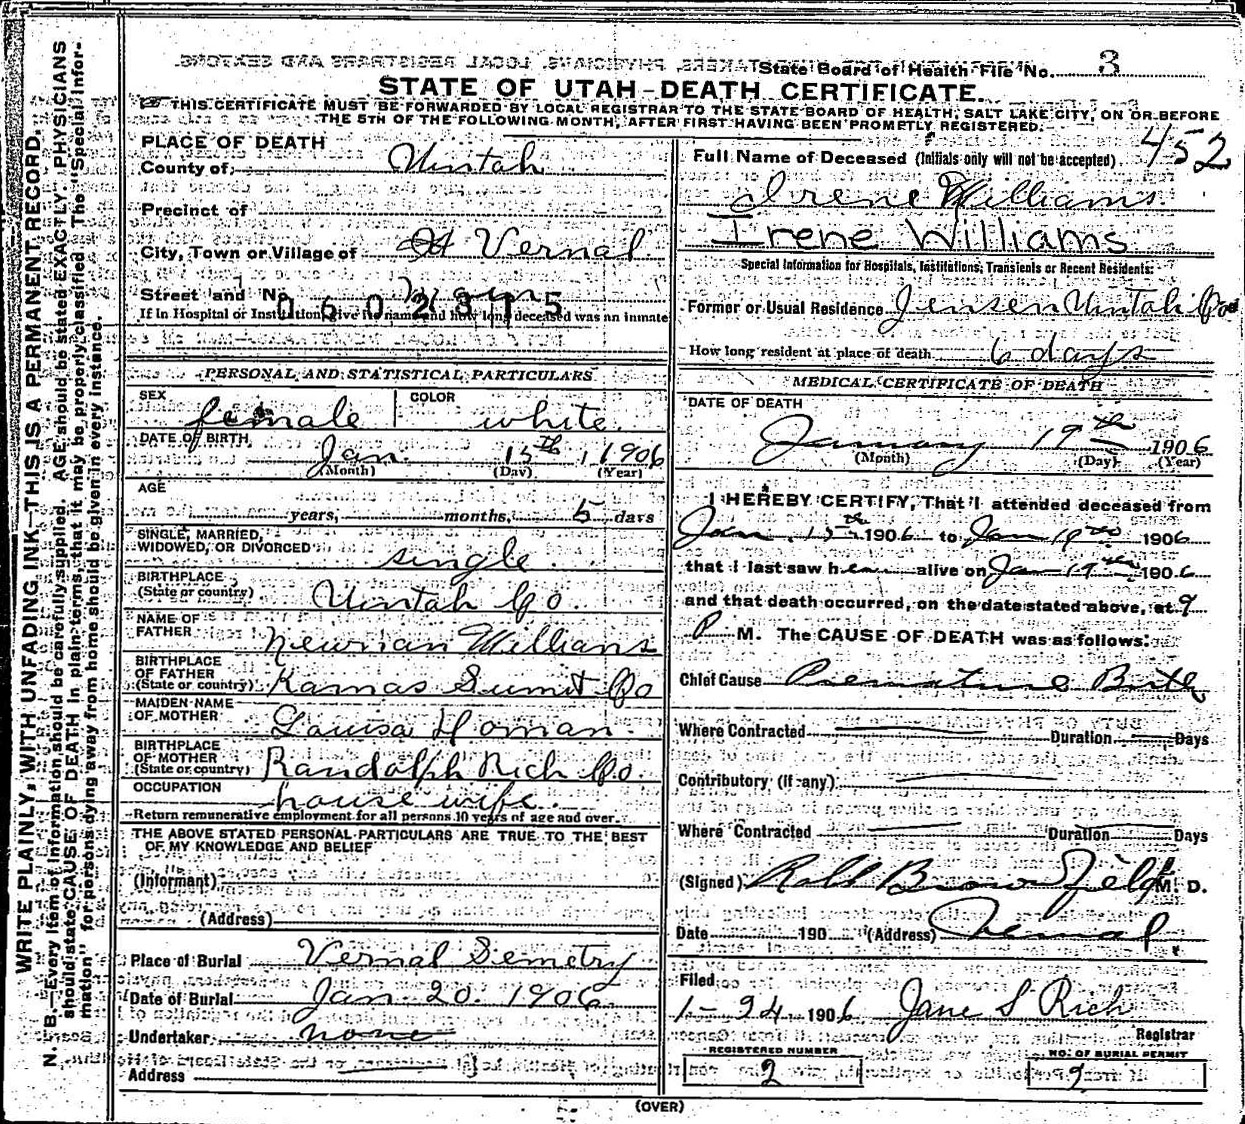 State Board of Health File No. 3
STATE OF UTAH—DEATH CERTIFICATE.
THIS CERTIFICATE MUST BE FORWARDED BY LOCAL REGISTRAR TO THE STATE BOARD OF HEALTH, SALT LAKE CITY, ON OR BEFORE
THE 5TH OF THE FOLLOWING MONTH, AFTER FIRST HAVING BEEN PROMPTLY REGISTERED.
WRITE PLAINLY, WITH UNFADING INK—THIS IS A PERMANENT RECORD.
N. B.—Every item of information should be carefully supplied. AGE should be stated EXACTLY. PHYSICIANS
should state CAUSE OF DEATH in plain terms, that it may be properly classified. The "Special Infor-
mation" for persons dying away from home should be given in every instance.
PLACE OF DEATH
County of Uintah
Precinct of
City, Town or Village of Vernal
Street and No.
0602315
If in Hospital or Institution, give its name and how long deceased was an inmate
PERSONAL AND STATISTICAL PARTICULARS
SEX female COLOR white
DATE OF BIRTH Jan. 15th, 1906
(Month) (Day) (Year)
AGE
years, months, 5 days
SINGLE, MARRIED,
WIDOWED, OR DIVORCED single
BIRTHPLACE
(State or country) Uintah Co.
NAME OF
FATHER Newrian Willians
BIRTHPLACE
OF FATHER
(State or country) Kamas Sumit Co
MAIDEN NAME
OF MOTHER Louisa Homan
BIRTHPLACE
OF MOTHER
(State or country) Randolph Rich Co.
OCCUPATION house wife.
Return remunerative employment for all persons 10 years of age and over.
THE ABOVE STATED PERSONAL PARTICULARS ARE TRUE TO THE BEST
OF MY KNOWLEDGE AND BELIEF
(Informant)
(Address)
Place of Burial Vernal Semetry
Date of Burial Jan. 20. 1906
Undertaker none
Address
452
Full Name of Deceased (Initials only will not be accepted)
Irene Williams
Irene Williams
Special Information for Hospitals, Institutions, Transients or Recent Residents:
Former or Usual Residence Jensen Uintah Co
How long resident at place of death 6 days
MEDICAL CERTIFICATE OF DEATH
DATE OF DEATH
January 19th 1906
(Month) (Day) (Year)
I HEREBY CERTIFY, That I attended deceased from
Jan. 15th 1906 to Jan 19th 1906
that I last saw her alive on Jan 19th 1906
and that death occurred, on the date stated above, at 9
P M. The CAUSE OF DEATH was as follows:
Chief Cause Premature Birth
Where Contracted Duration Days
Contributory (if any)
Where Contracted Duration Days
(Signed) Brownfield M. D.
Date 190 (Address) Vernal
Filed
1-24 1906 Jane S Rich
Registrar
REGISTERED NUMBER 2
NO. OF BURIAL PERMIT 2
(OVER)